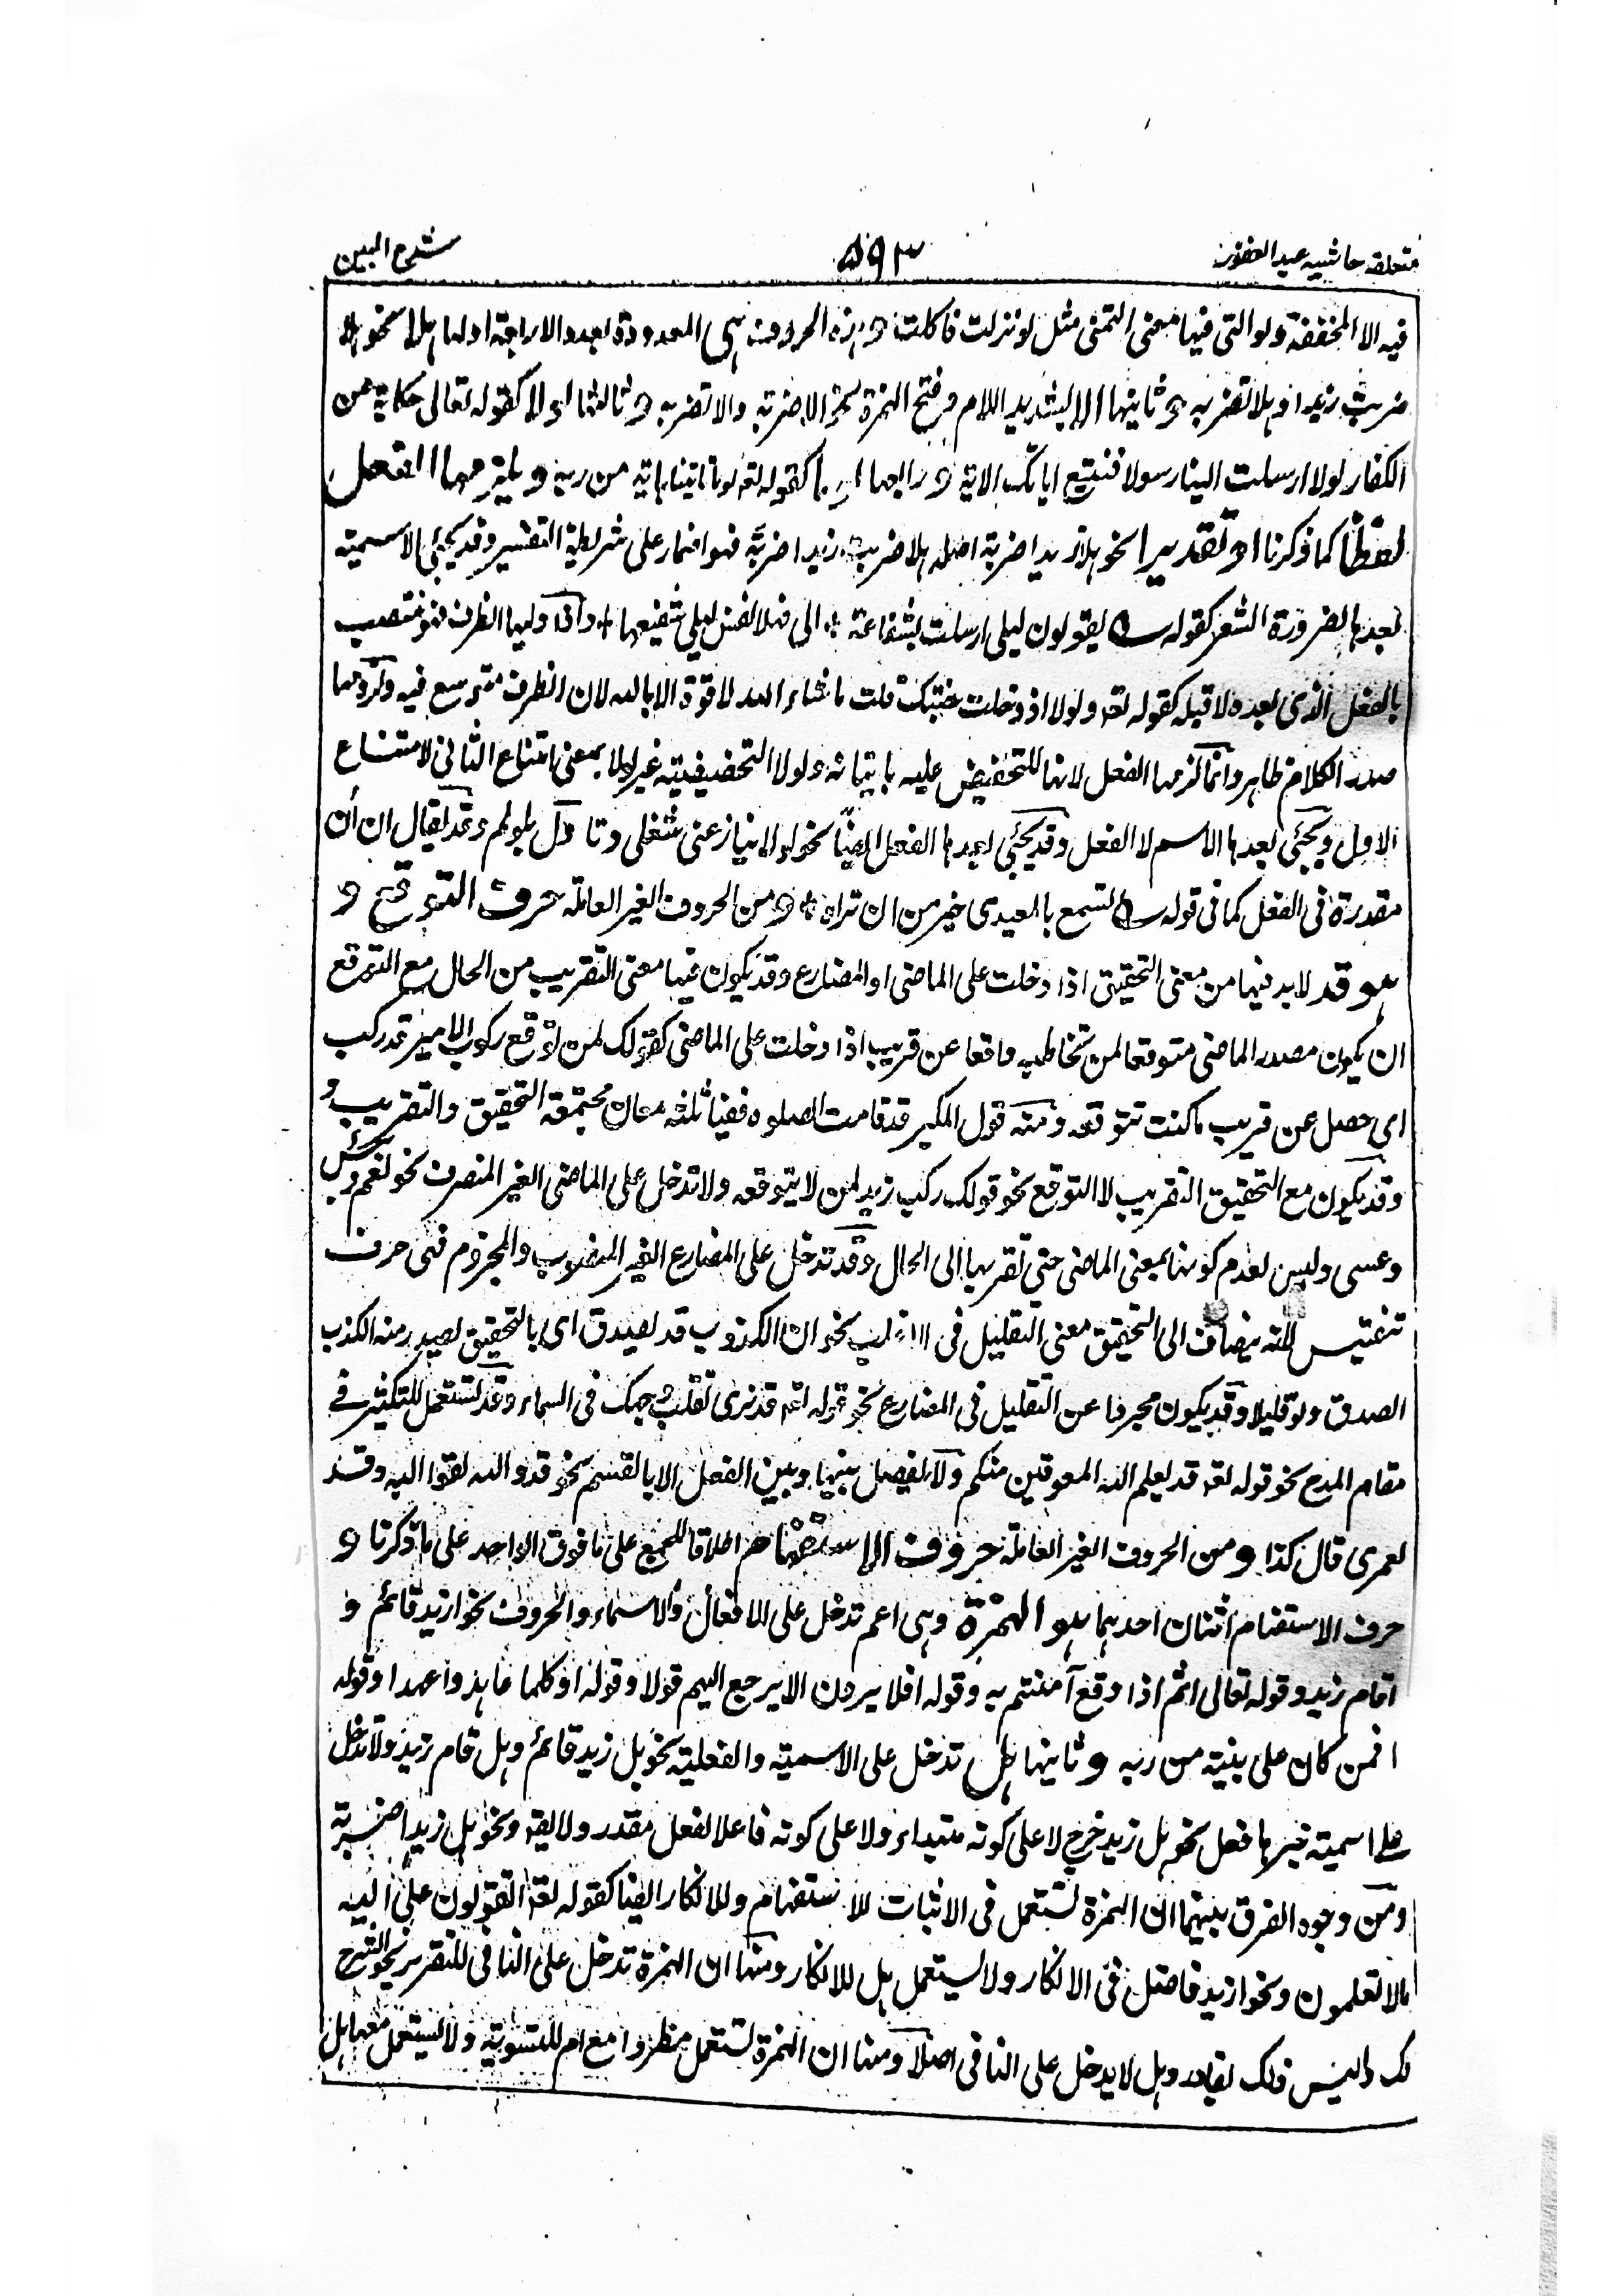 متعلقه حاشیه عبد الغفور ۵۹۳ شرح المبین
فیه الا المخففة ولو التی فیها معنی التمنی مثل لو نزلت فاکلت و هذه الحروف هی المعدودة لعدد الاربعة اولها هلا نحو هلا
ضربت زیدا و هلا تضربه و ثانیها الا بتشدید اللام و فتح الهمزة نحو الا ضربته والا تضربه و ثالثها لولا کقوله تعالی حکایة عن
الکفار لولا ارسلت الینا رسولا فنتبع ایاتک الایة و رابعها لوما کقوله تعه لوما تاتینا بایة من ربه و یلزمها الفعل
لفظا کما ذکرنا او تقدیرا نحو هلا زیدا ضربته اصله هلا ضربت زیدا ضربته فهو اضمار علی شریطة التفسیر و قد یجیئ الاسمیته
بعدها لضرورة الشعر کقوله یقولون لیلی ارسلت بشفاعة الی فهلا نفس لیلی شفیعها و اذا ولیها الظرف فهو منتصب
بالفعل الذی بعده لا قبله کقوله تعه ولولا اذ دخلت جنتک قلت ما شاء الله لا قوة الا بالله لان الظرف متوسع فیه ولزومها
صدر الکلام ظاهر وانما لزمها الفعل لانها للتحضیض علیه باتیانه و لولا التحضیضیته غیر لولا بمعنی امتناع الثانی لامتناع
الاول و یجیئ بعدها الاسم لا الفعل وقد یجیئ بعدها الفعل ایضا نحو لولا ینازعنی شغلی و تاول بلو لم وقد یقال ان أن
مقدرة فی الفعل کما فی قوله تسمع بالمعیدی خیر من ان تراه و من الحروف الغیر العاملة حرف التوقع و
هو قد لابد فیها من معنی التحقیق اذا دخلت علی الماضی او المضارع وقد یکون فیها معنی التقریب من الحال مع التوقع
ان یکون مصدر الماضی متوقعا لمن تخاطبه واقعا عن قریب اذا دخلت علی الماضی کقولک لمن توقع رکوب الامیر قد رکب
ای حصل عن قریب ما کنت تتوقعه و منه قول المکبر قد قامت الصلوه ففیها ثلثة معان مجتمعة التحقیق والتقریب و
وقد یکون مع التحقیق التقریب لا التوقع نحو قولک رکب زید لمن لا یتوقعه ولا تدخل علی الماضی الغیر المنصرف نحو نعم و بئس
و عسی و لیس لعدم کونها بمعنی الماضی حتی تقربها الی الحال و قد تدخل علی المضارع الغیر المنصوب والمجزوم فهی حرف
تنفیس یضاف الی التحقیق معنی التقلیل فی نحو ان الکذوب قد یصدق ای بالتحقیق یصدر منه الکذب
الصدق ولو قلیلا وقد یکون مجردا عن التقلیل فی المضارع نحو قوله تعه قد نری تقلب وجهک فی السماء وقد تستعمل للتکثیر فے
مقام المدح نحو قوله تعه قد یعلم الله المعوقین منکم ولا یفصل بینها و بین الفعل الا بالقسم نحو قد والله لقوا الیه و قد
لعمری قال کذا و من الحروف الغیر العاملة حروف الاستفهام اطلاقا للجمع علی ما فوق الواحد علی ما ذکرنا و
حرف الاستفهام اثنان احدهما هو الهمزة وهی اعم تدخل علی الافعال والاسماء والحروف نحو ازید قائم و
اقام زید و قوله تعالی اثم اذا وقع آمنتم به و قوله افلا یرون الا یرجع الیهم قولا و قوله او کلما عاهدوا عهدا و قوله
افمن کان علی بینة من ربه و ثانیها هل تدخل علی الاسمیته والفعلیة نحو هل زید قائم و هل قام زید ولا تدخل
علے اسمیته خبرها فعل نحو هل زید خرج لا علی کونه مبتداء ولا علی کونه فاعلا لفعل مقدر ولا یقه و نحو هل زیدا ضربته
و من وجوه الفرق بینهما ان الهمزة تستعمل فی الاثبات للاستفهام وللانکار ایضا کقوله تعه اتقولون علی الله
ما لا تعلمون و نحو ازید فاضل فی الانکار ولا یستعمل هل للانکار و منها ان الهمزة تدخل علی النافی للتقریر نحو الم نشرح
لک و الیس ذلک بقادر و هل لا یدخل علی النافی اصلا و منها ان الهمزة تستعمل مع ام للتسویة ولا یستعمل معها هل